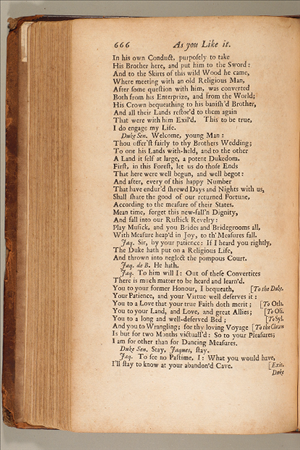 666 As you Like it.
In his own Conduct, purposely to take
His Brother here, and put him to the Sword:
And to the Skirts of this wild Wood he came,
Where meeting with an old Religious Man,
After some question with him, was converted
Both from his Enterprize, and from the World;
His Crown bequeathing to his banish'd Brother,
And all their Lands restor'd to them again
That were with him Exil'd. This to be true,
I do engage my Life.
Duke Sen. Welcome, young Man:
Thou offer'st fairly to thy Brothers Wedding;
To one his Lands with-held, and to the other
A Land it self at large, a potent Dukedom.
First, in this Forest, let us do those Ends
That here were well begun, and well begot:
And after, every of this happy Number
That have endur'd shrewd Days and Nights with us,
Shall share the good of our returned Fortune,
According to the measure of their States.
Mean time, forget this new-fall'n Dignity,
And fall into our Rustick Revelry:
Play Musick, and you Brides and Bridegrooms all,
With Measure heap'd in Joy, to th' Measures fall.
Jaq. Sir, by your patience: If I heard you rightly,
The Duke hath put on a Religious Life,
And thrown into neglect the pompous Court.
Jaq. de B. He hath.
Jaq. To him will I: Out of these Convertites
There is much matter to be heard and learn'd.
You to your former Honour, I bequeath, [To the Duke.
Your Patience, and your Virtue well deserves it:
You to a Love that your true Faith doth merit: [To Orla.
You to your Land, and Love, and great Allies; [To Oli.
You to a long and well-deserved Bed; [To Syl.
And you to Wrangling; for thy loving Voyage [To the Clown
Is but for two Months victuall'd: So to your Pleasures;
I am for other than for Dancing Measures.
Duke Sen. Stay, Jaques, stay.
Jaq. To see no Pastime, I: What you would have,
I'll stay to know at your abandon'd Cave. [Exit.
Duke